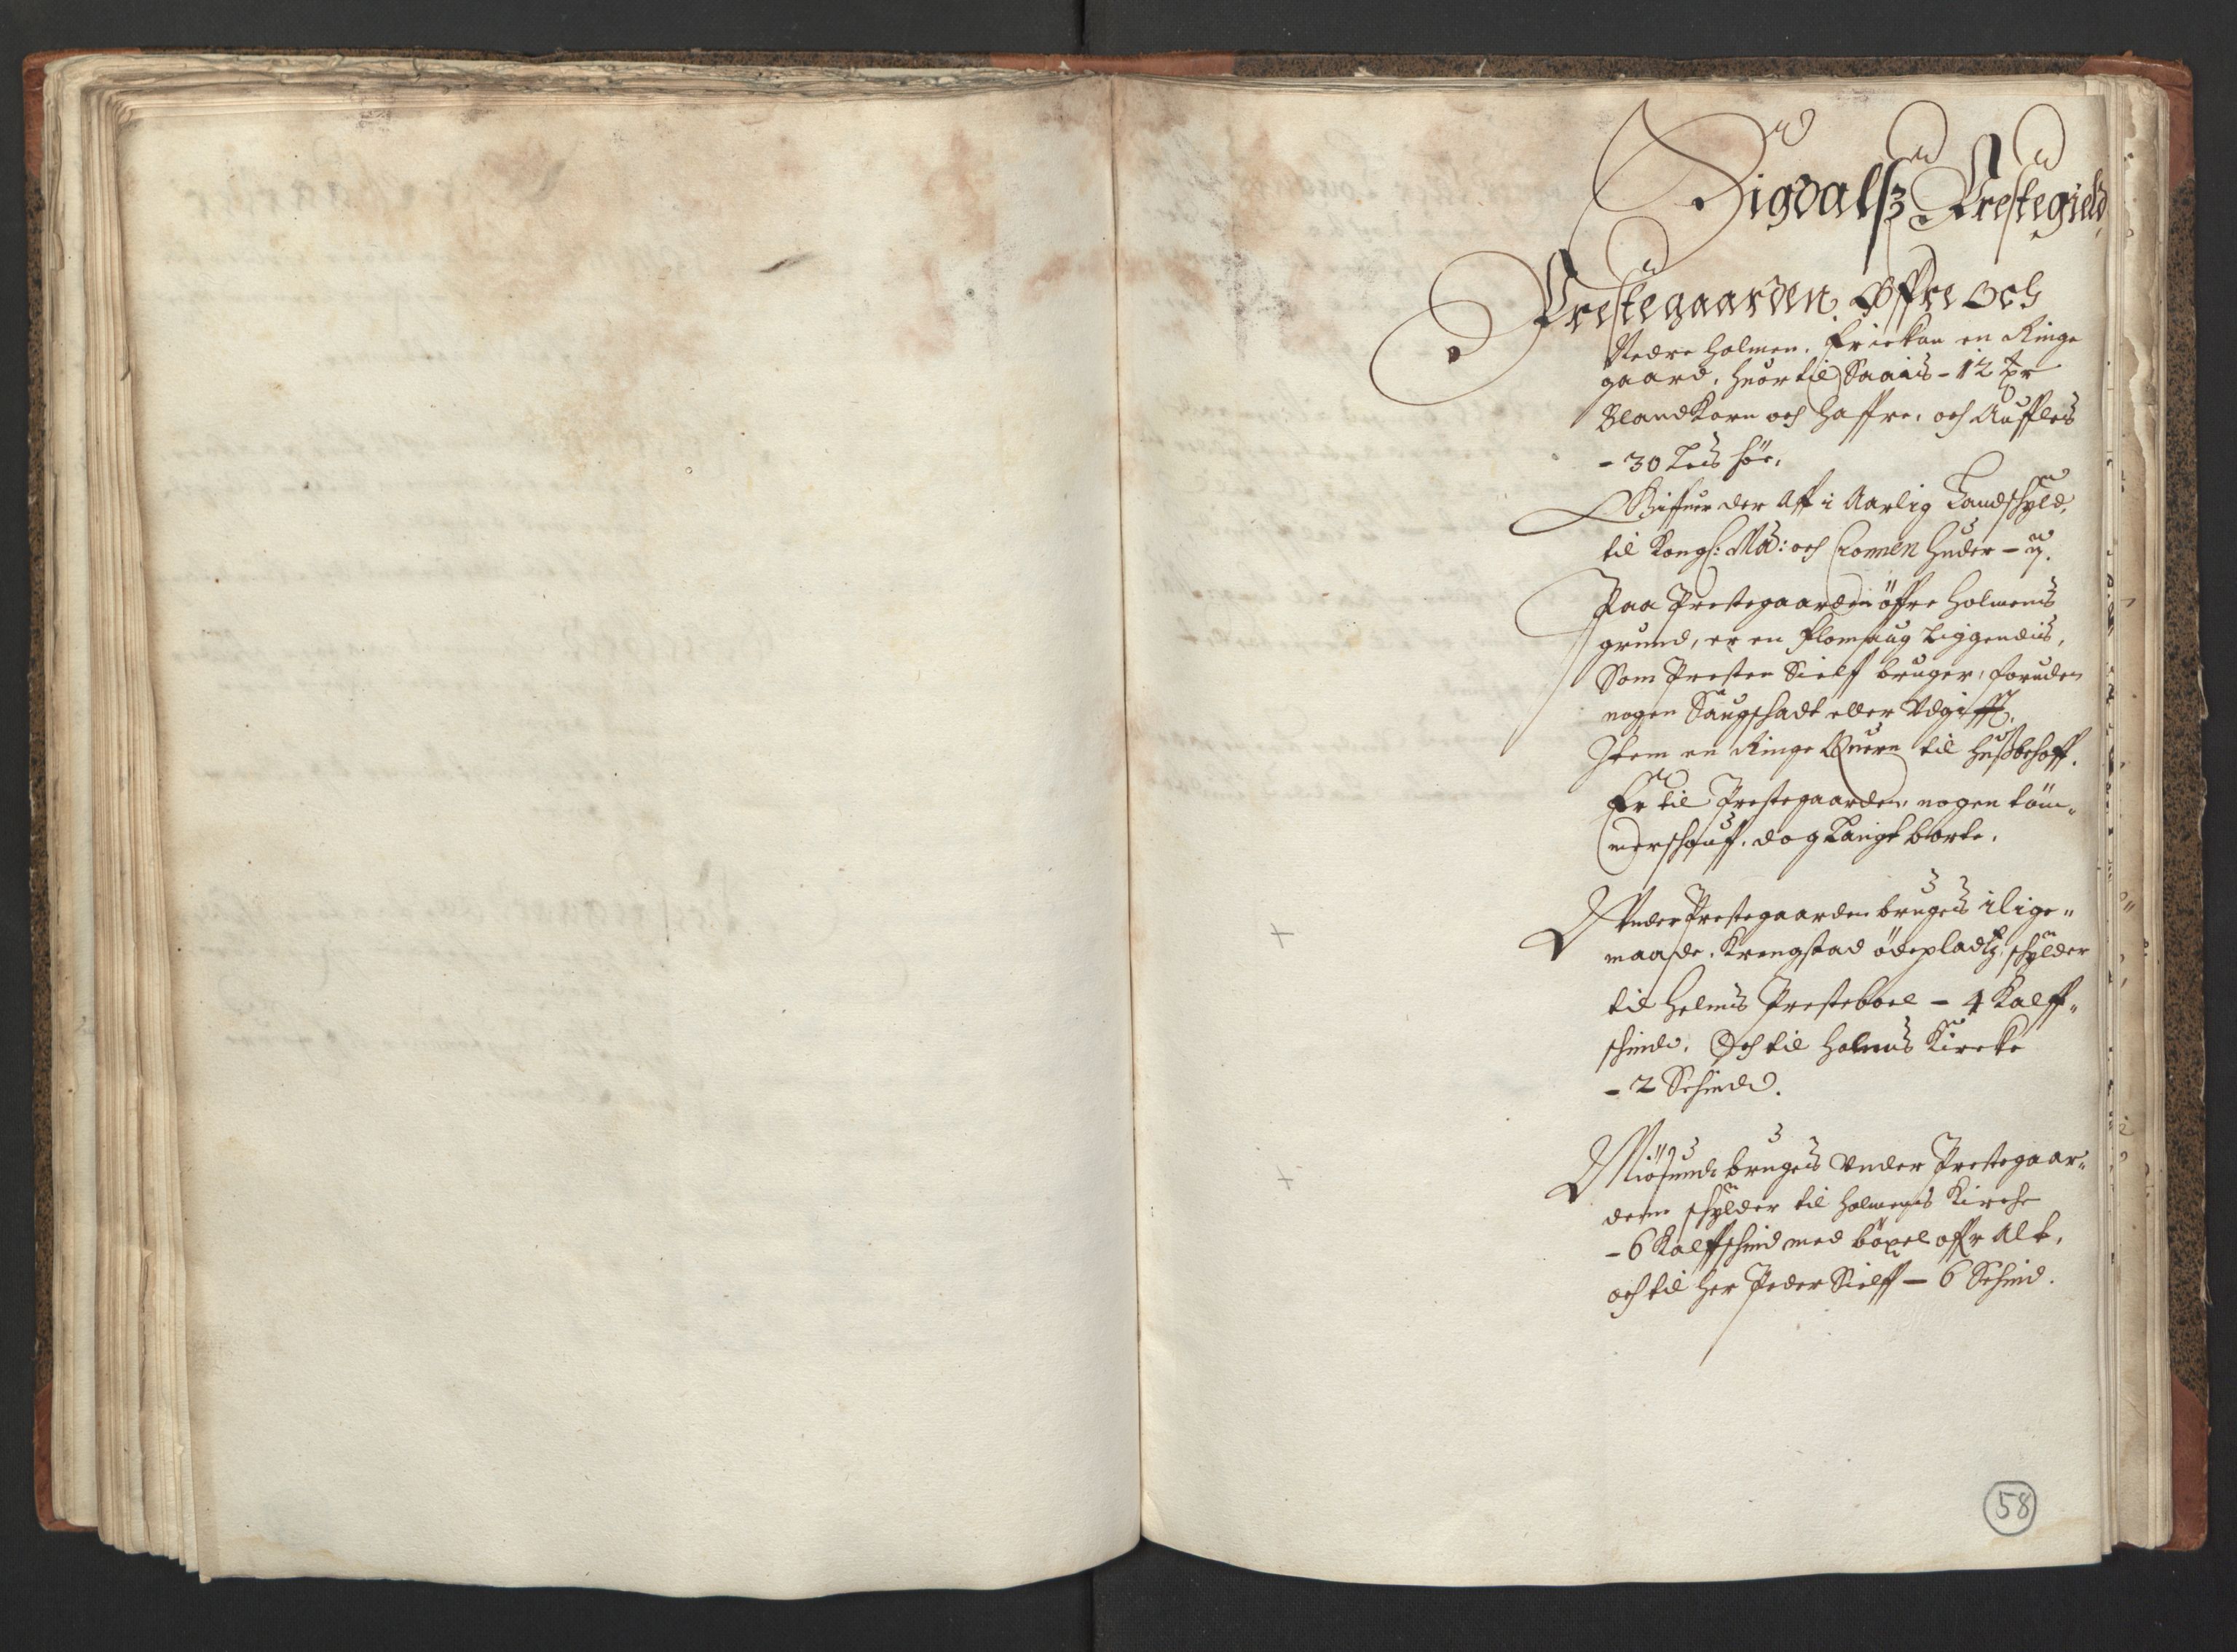 Sigdals Prestegield
Prestegaarden Øffre och
Nedre Holmen. Er ickon en Ringe
gaard, huortil Saais - 12 tr
Blandkorn och Haffre, och Auffles
- 30 Les höe.
Giffuer der Aff i Aarlig Landschyld,
til Kongl: Ma: och Cronnen Huder - ij.
Paa Prestegaarden öffre Holmens
grund, er en flomsaug Liggendis,
Som Presten Sielf bruger, foruden
nogen Saugschadt eller Udgifft.
Item en Ringe Quern til Hussbehoff.
Er til Prestegaarden nogen töm-
merschouff, dog Langt borte.
Under Prestegaarden bruges ilige-
maade. Krengstad ödepladtz, schylder
til Holmens Presteboel - 4 Kalff-
schindt. Och til Holmens Kircke
- 2 Schindt.
+
Miösundt bruges under Prestegaar-
denn schylder til Holmens Kirche
- 6 Kalffschind med böxel offr Alt,
och til Her Peder Sielff - 6 Schind.
+
58